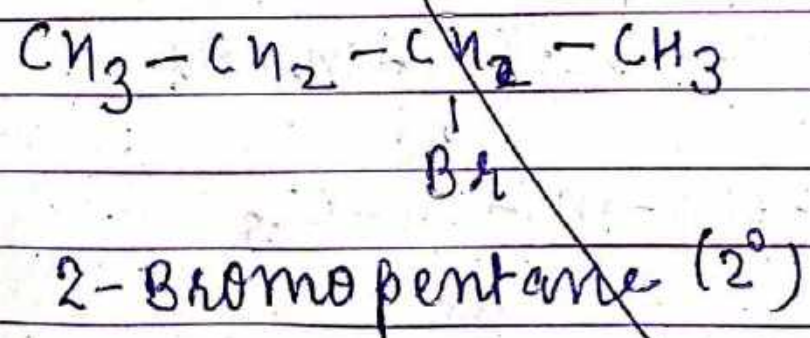 CH3-CH2-CH2-CH3
|
Br
2-Bromopentane (2°)